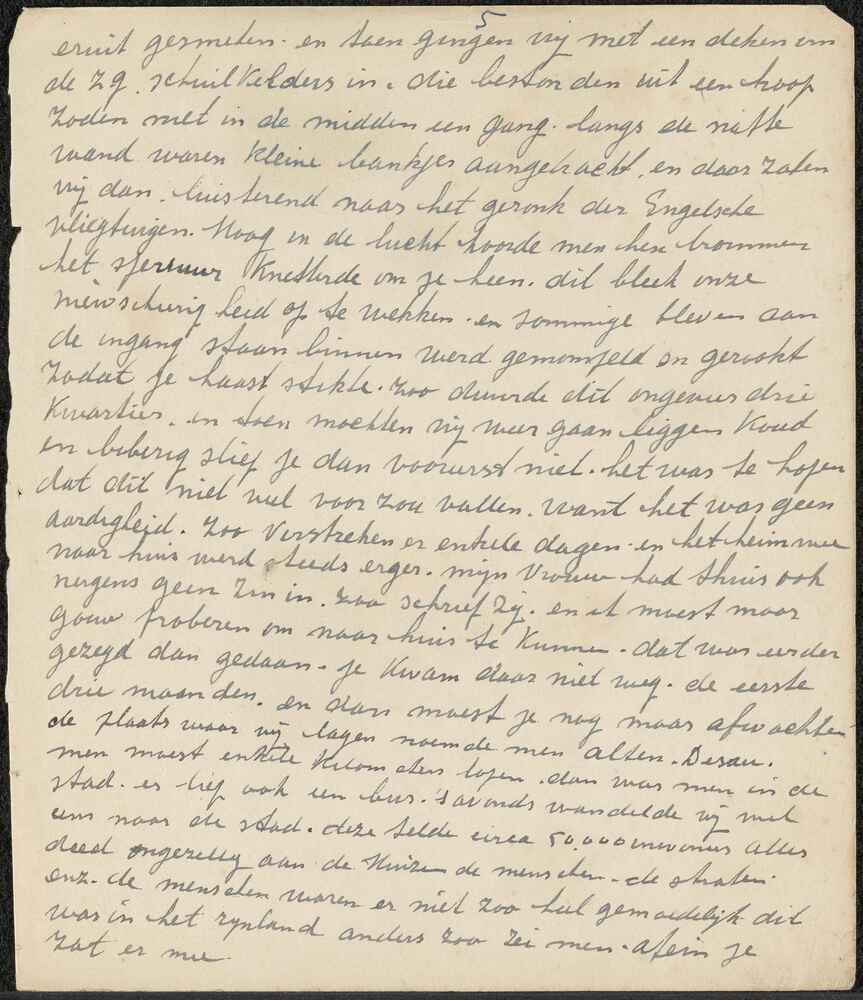 5
eruit gesmeten. en toen gingen wij met een deken om
de zg. schuilkelders in. die bestonden uit een hoop
zoden met in de midden een gang. langs de natte
wand waren kleine bankjes aangebracht, en daar zaten
wij dan. luisterend naar het geronk der Engelsche
vliegtuigen. Hoog in de lucht hoorde men hen brommen
het spervuur knetterde om je heen. dit bleek onze
nieuwscherigheid op te wekken. en sommige bleven aan
de ingang staan binnen werd gemompeld en gerookt
zodat je haast stikte. zoo duurde dit ongeveer drie
kwartier. en toen mochten wij weer gaan liggen koud
en biberig sliep je dan voorerst niet. het was te hopen
dat dit niet veel voor zou vallen. want het was geen
aardigheid. zoo verstreken er enkele dagen. en het heimwee
naar huis werd steeds erger. mijn vrouw had thuis ook
nergens geen zin in. zoo schreef zij. en ik moest maar
gouw proberen om naar huis te kunnen. dat was eerder
gezegd dan gedaan. je kwam daar niet weg. de eerste
drie maanden. en dan moest je nog maar afwachten
de plaats waar wij lagen noemde men Alten. Desau.
men moest enkele kilometers lopen. dan was men in de
stad. er liep ook een bus. 's avonds wandelde wij wel
eens naar de stad. deze telde circa 50.000 inwoners alles
deed ongezellig aan de Huizen de menschen. de straten
enz. de menschen waren er niet zoo heel gemoedelijk dit
was in het rynland anders zoo zei men. afein je
zat er mee.